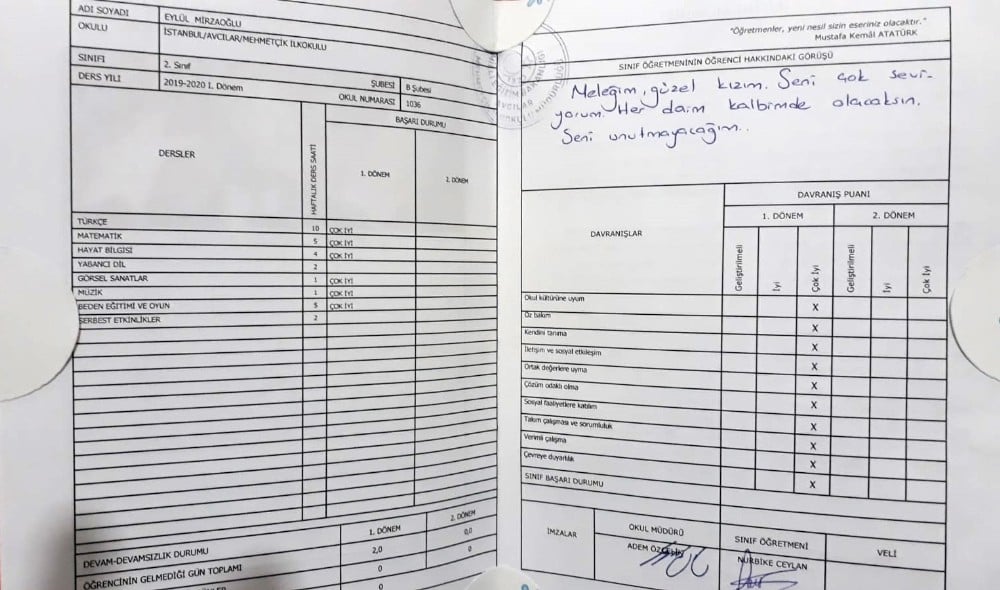 ADI SOYADI EYLÜL MİRZAOĞLU
OKULU İSTANBUL/AVCILAR/MEHMETÇİK İLKOKULU
SINIFI 2. Sınıf ŞUBESİ B Şubesi
DERS YILI 2019-2020 I. Dönem OKUL NUMARASI 1036
DERSLER HAFTALIK DERS SAATİ BAŞARI DURUMU
1. DÖNEM 2. DÖNEM
TÜRKÇE 10 ÇOK İYİ
MATEMATİK 5 ÇOK İYİ
HAYAT BİLGİSİ 4 ÇOK İYİ
YABANCI DİL 2
GÖRSEL SANATLAR 1 ÇOK İYİ
MÜZİK 1 ÇOK İYİ
BEDEN EĞİTİMİ VE OYUN 5 ÇOK İYİ
SERBEST ETKİNLİKLER 2
1. DÖNEM 2. DÖNEM
DEVAM-DEVAMSIZLIK DURUMU 2,0 0,0
ÖĞRENCİNİN GELMEDİĞİ GÜN TOPLAMI 0 0
0
"Öğretmenler, yeni nesil sizin eseriniz olacaktır."
Mustafa Kemâl ATATÜRK
SINIF ÖĞRETMENİNİN ÖĞRENCİ HAKKINDAKİ GÖRÜŞÜ
Meleğim, güzel kızım. Seni çok sevi-
yorum. Her daim kalbimde olacaksın.
Seni unutmayacağım..
DAVRANIŞLAR DAVRANIŞ PUANI
1. DÖNEM 2. DÖNEM
Geliştirilmeli İyi Çok İyi Geliştirilmeli İyi Çok İyi
Okul kültürüne uyum X
Öz bakım X
Kendini tanıma X
İletişim ve sosyal etkileşim X
Ortak değerlere uyma X
Çözüm odaklı olma X
Sosyal faaliyetlere katılım X
Takım çalışması ve sorumluluk X
Verimli çalışma X
Çevreye duyarlılık X
SINIF BAŞARI DURUMU
İMZALAR OKUL MÜDÜRÜ SINIF ÖĞRETMENİ VELİ
ADEM NURBİKE CEYLAN